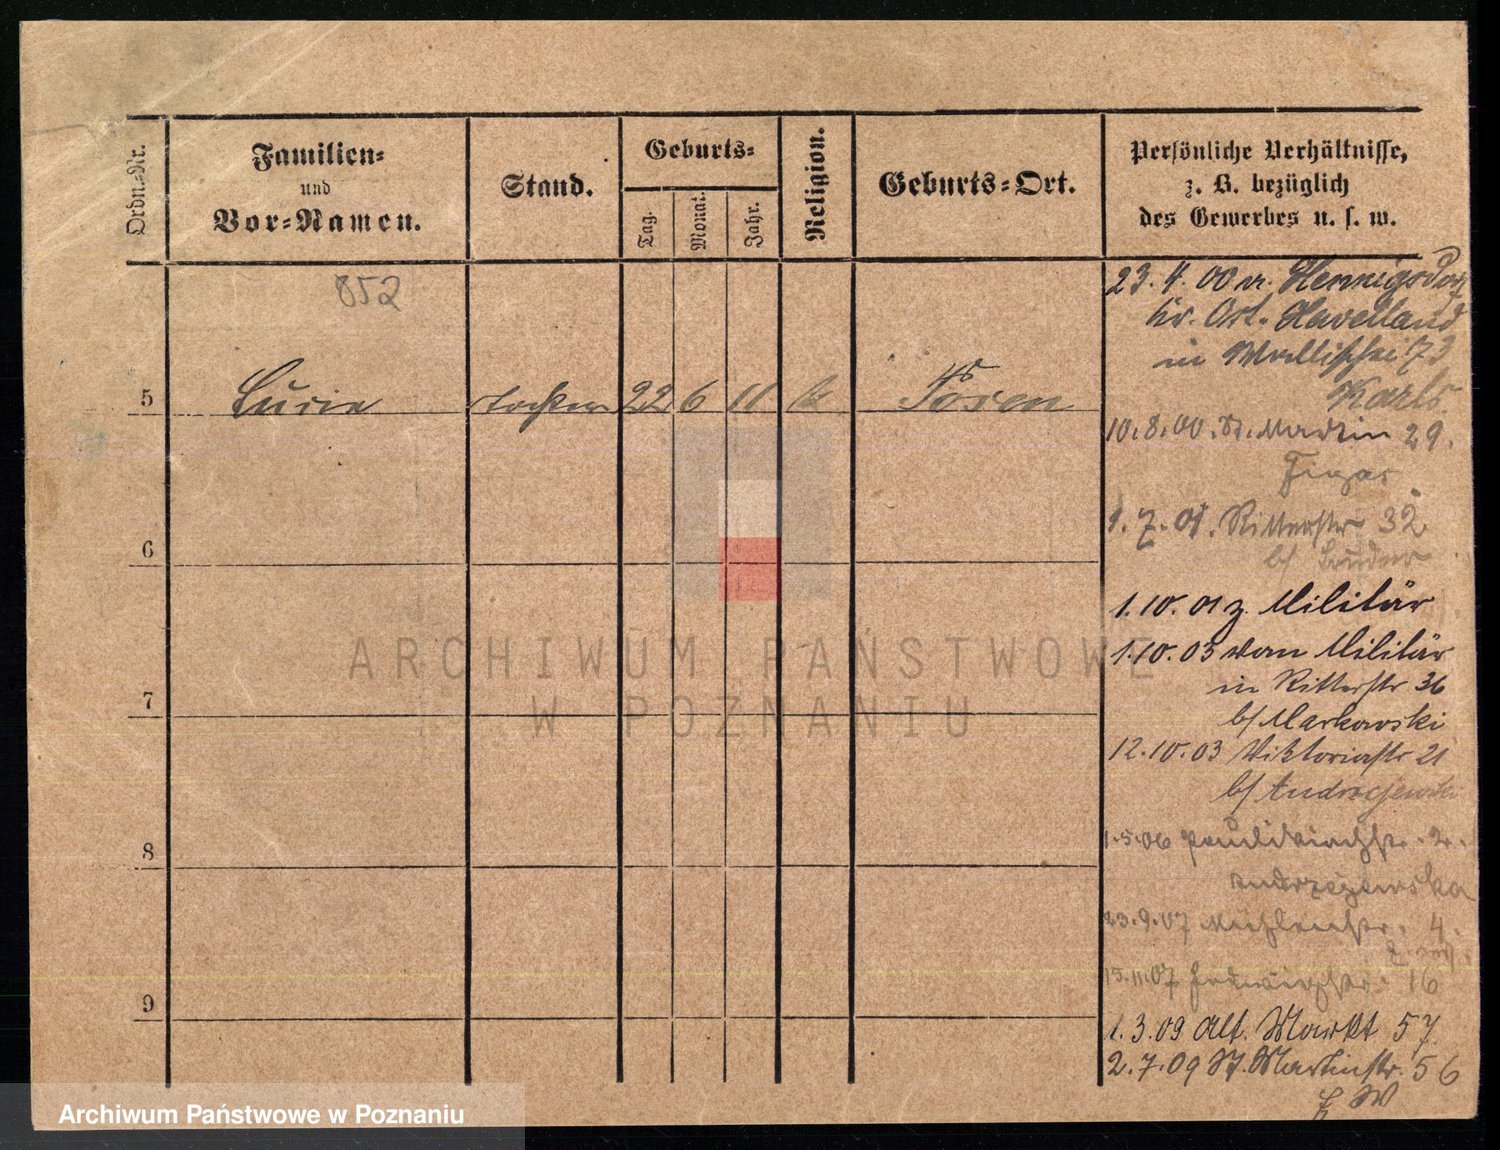 Ordn.-Nr.
Familien-
und
Vor-Namen.
Stand.
Geburts-
Tag.
Monat.
Jahr.
Religion.
Geburts-Ort.
Persönliche Verhältnisse,
z. B. bezüglich
des Gewerbes u. s. w.
852
23. 4. 00 v. Hennigsdorf
Kr. Ost. Havelland
in Wallischei 73
Karls.
5 Lucie Tochter 22 6 11 k Posen
10. 8. 00. St. Martin 29.
1. 7. 01. Ritterstr 32
b/
6
1. 10. 01 z. Militär
1. 10. 03 vom Militär
in Ritterstr 36
7
b/ Markowski
12. 10. 03 Viktoriastr 21
b/ Andrzejewski
1. 5. 06 Paulikirchstr. 2.
8
Andrzejewska
23. 9. 07 Mühlenstr. 4.
15. 11. 07 16
9
1. 3. 09 Alt. Markt 57.
2. 7. 09 St. Martinstr. 56
ARCHIWUM PAŃSTWOWE
W POZNANIU
Archiwum Państwowe w Poznaniu